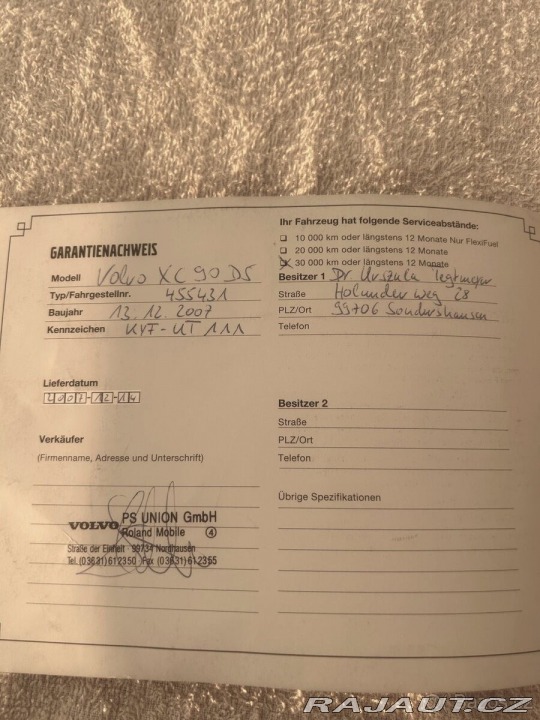 GARANTIENACHWEIS
Modell Volvo XC90 D5
Typ/Fahrgestellnr. 455431
Baujahr 13.12.2007
Kennzeichen KYF-UT 111
Lieferdatum
2007-12-14
Verkäufer
(Firmenname, Adresse und Unterschrift)
VOLVO PS UNION GmbH
Roland Mobile 4
Straße der Einheit · 99734 Nordhausen
Tel. (03631) 612350 Fax (03631) 612355
Ihr Fahrzeug hat folgende Serviceabstände:
10 000 km oder längstens 12 Monate Nur FlexiFuel
20 000 km oder längstens 12 Monate
30 000 km oder längstens 12 Monate
Besitzer 1 Dr. Urszula
Straße Holunderweg 28
PLZ/Ort 99706 Sondershausen
Telefon
Besitzer 2
Straße
PLZ/Ort
Telefon
Übrige Spezifikationen
RAJAUT.CZ